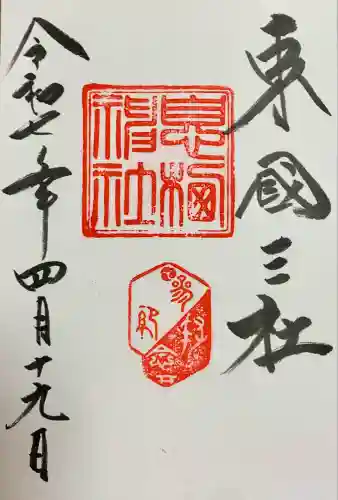 東國三社
息栖神社
令和七年四月十九日